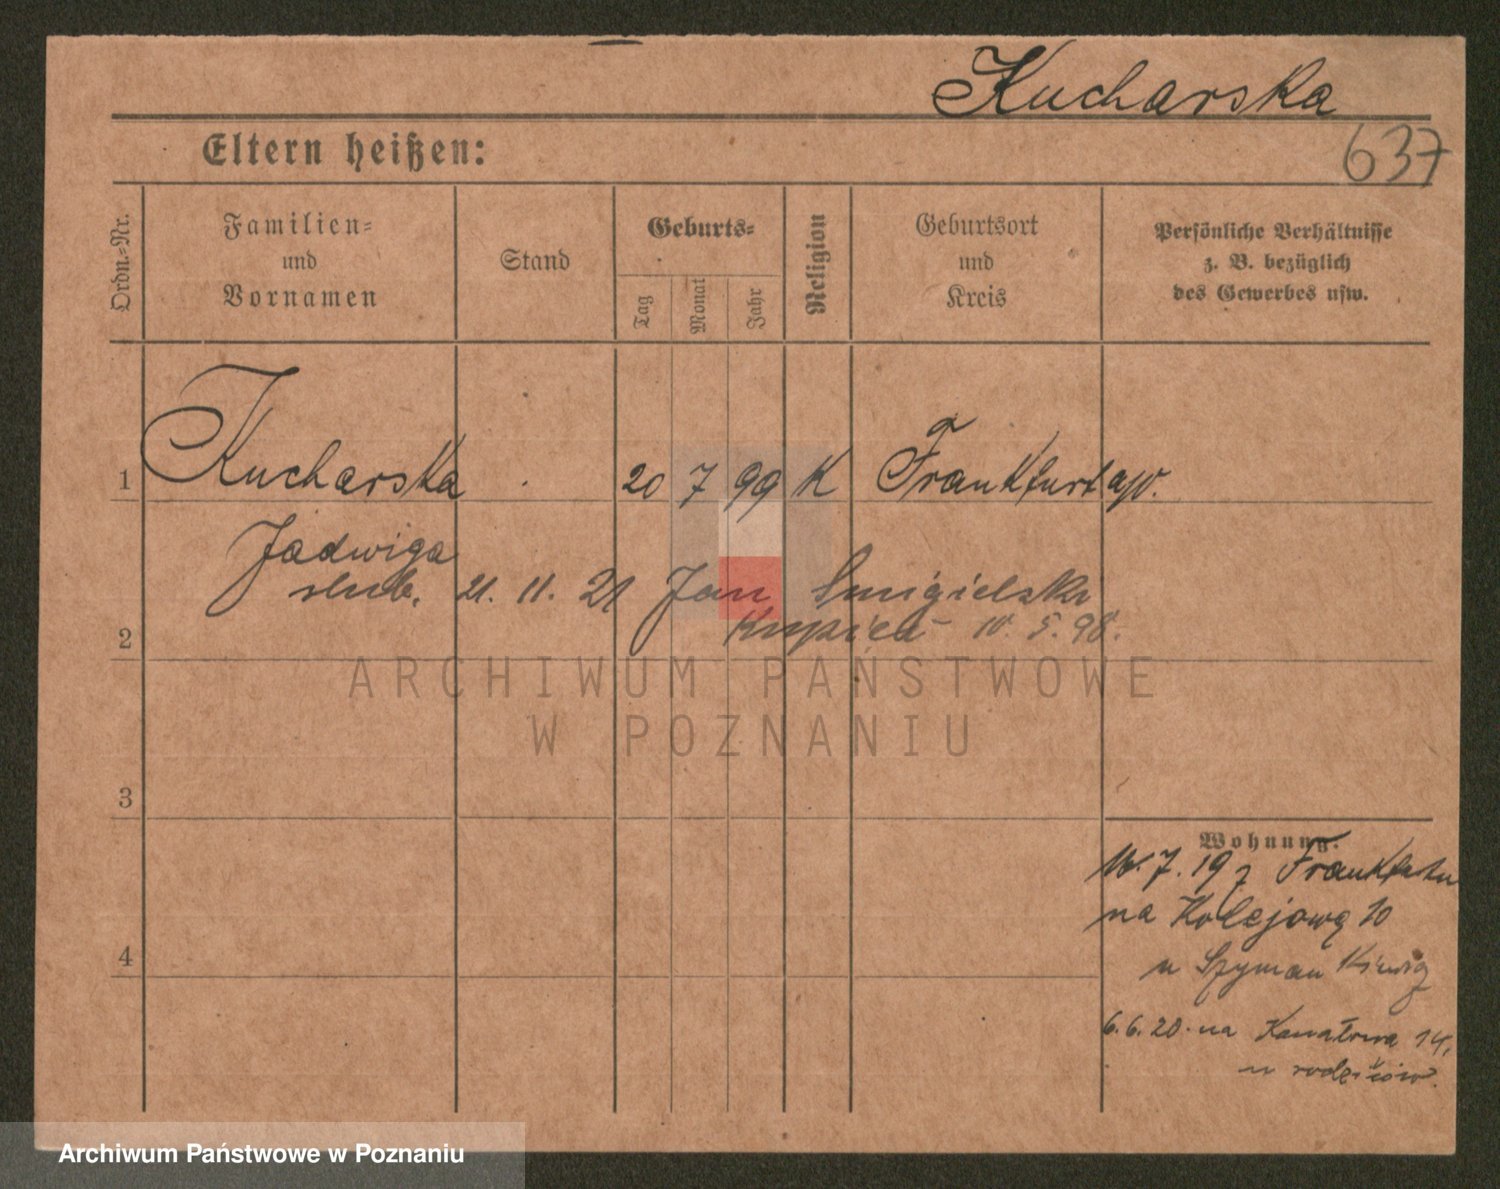 Kucharska
637
Eltern heißen:
Ordn.-Nr.
Familien-
und
Vornamen
Stand
Geburts-
Tag
Monat
Jahr
Religion
Geburtsort
und
Kreis
Persönliche Verhältnisse
z. B. bezüglich
des Gewerbes usw.
1 Kucharska 20 7 99 K Frankfurt a/O.
Jadwiga
ślub. 21. 11. 21 Jan Smigielski
2 Kupiec 10. 5. 98.
ARCHIWUM PAŃSTWOWE
W POZNANIU
3
Wohnung.
7. 19 z Frankfurtu
na Kolejową 10
4 u Szyman
6. 6. 20. na Kanałowa 14,
u rodziców.
Archiwum Państwowe w Poznaniu